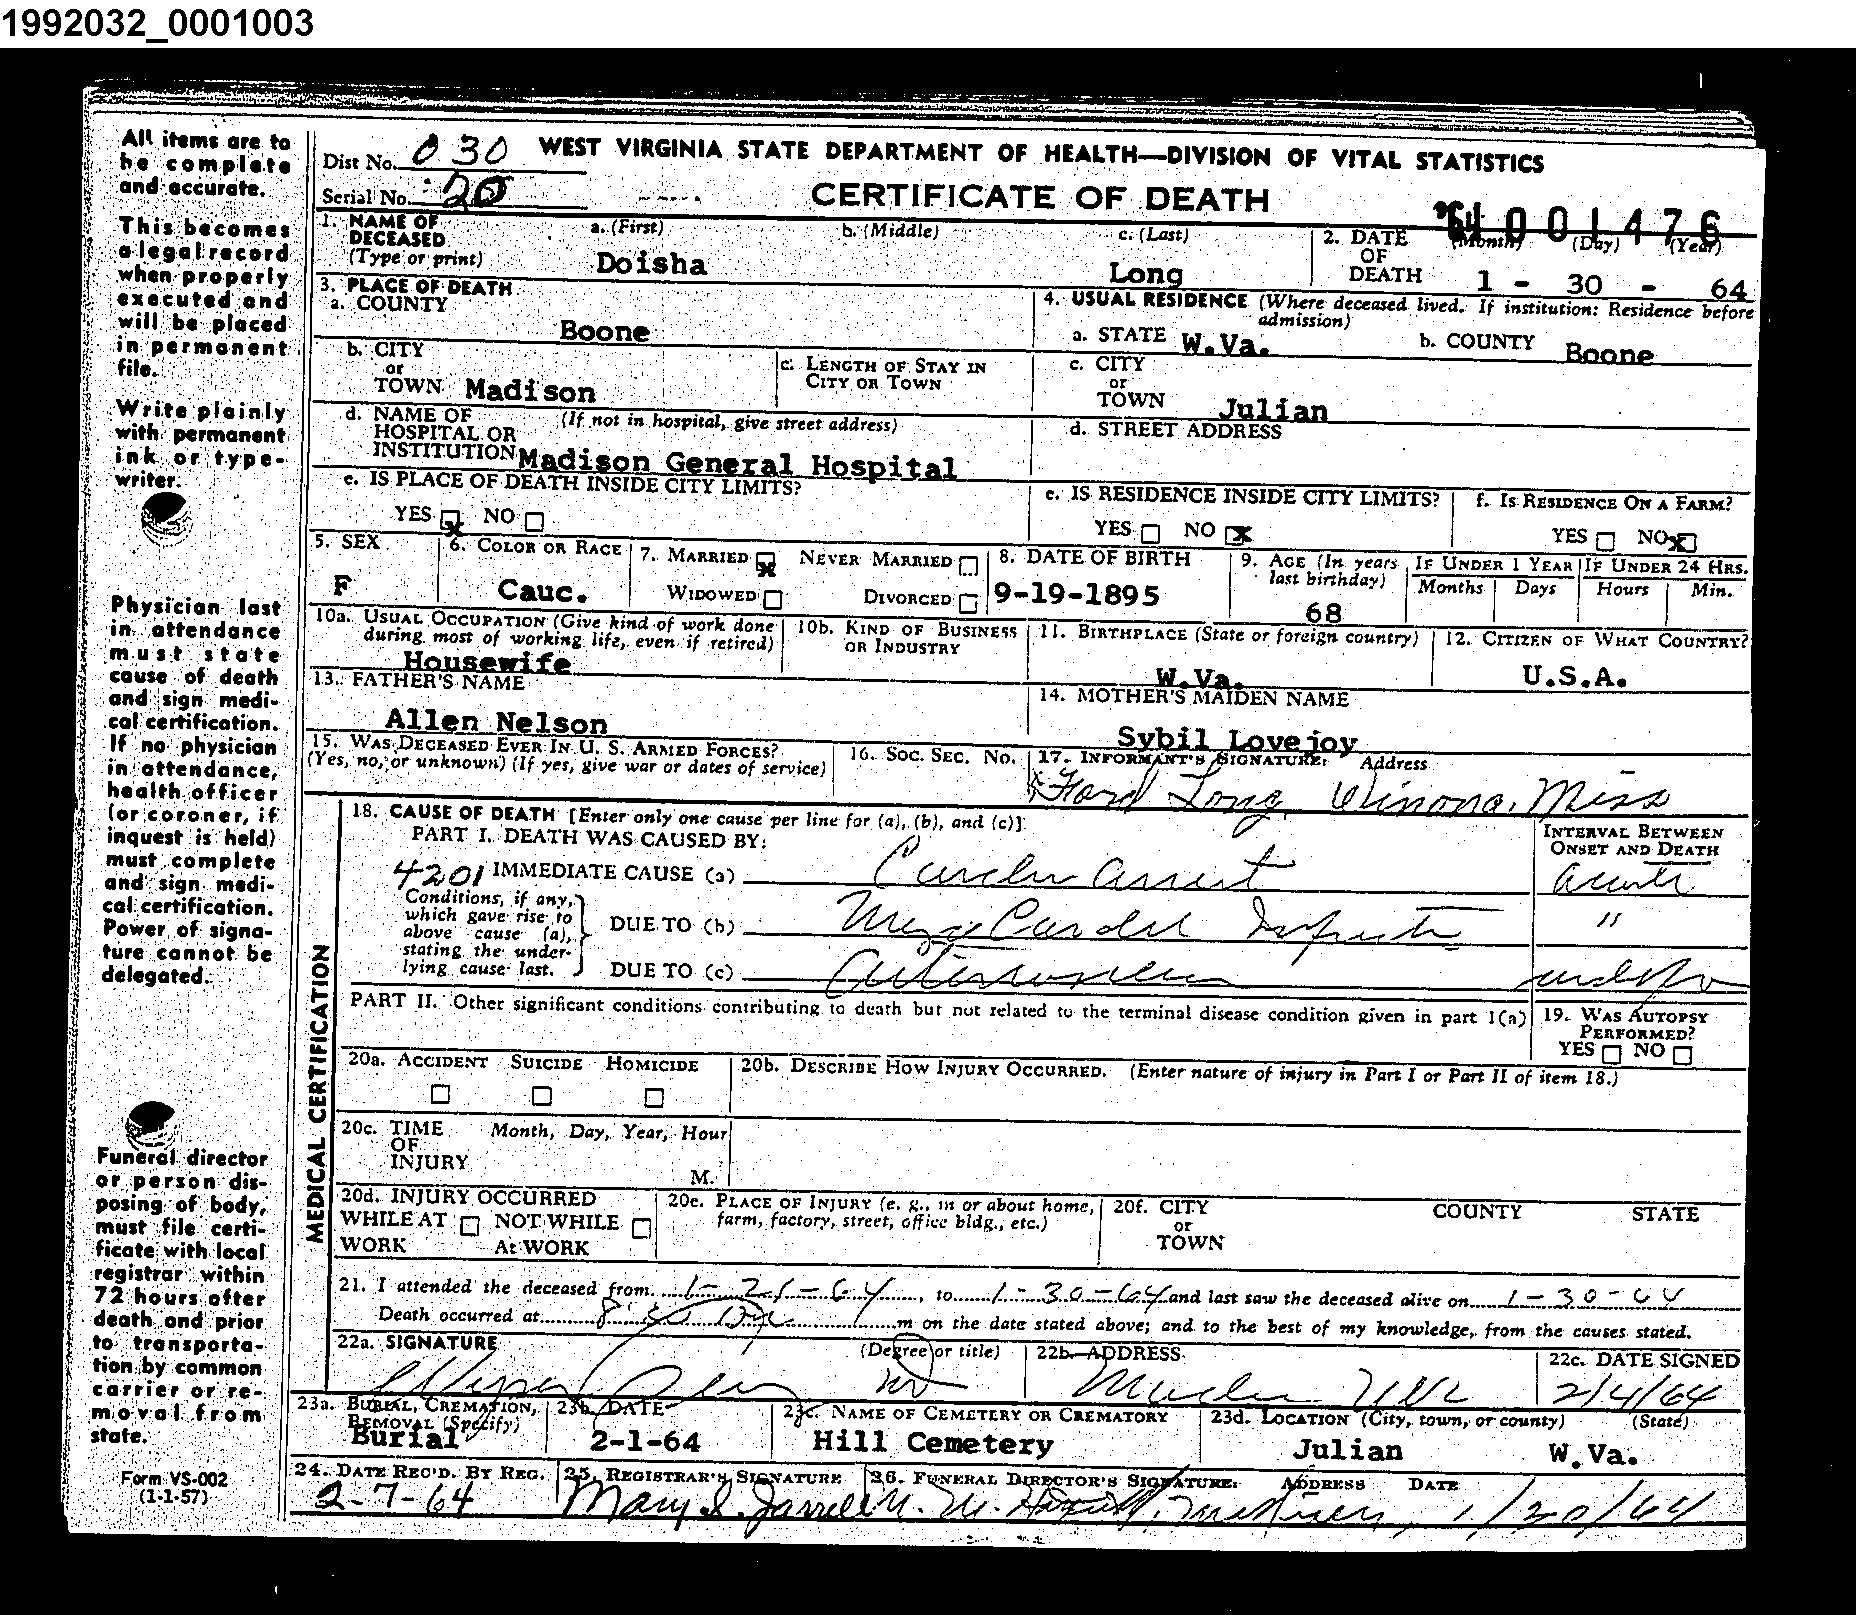 1992032_0001003
All items are to be complete and accurate.
This becomes a legal record when properly executed and will be placed in permanent file.
Write plainly with permanent ink or typewriter.
Physician last in attendance must state cause of death and sign medical certification. If no physician in attendance, health officer (or coroner, if inquest is held) must complete and sign medical certification. Power of signature cannot be delegated.
Funeral director or person disposing of body, must file certificate with local registrar within 72 hours after death and prior to transportation by common carrier or removal from state.
Form VS-002
(1-1-57)
Dist No. 030 WEST VIRGINIA STATE DEPARTMENT OF HEALTH—DIVISION OF VITAL STATISTICS
Serial No. 20 CERTIFICATE OF DEATH
64 001476
1. NAME OF DECEASED (Type or print) a. (First) b. (Middle) c. (Last) 2. DATE OF DEATH (Month) (Day) (Year)
Doisha Long 1 - 30 - 64
3. PLACE OF DEATH
a. COUNTY Boone
4. USUAL RESIDENCE (Where deceased lived. If institution: Residence before admission)
a. STATE W.Va. b. COUNTY Boone
b. CITY or TOWN Madison c. LENGTH OF STAY IN CITY OR TOWN
c. CITY or TOWN Julian
d. NAME OF HOSPITAL OR INSTITUTION (If not in hospital, give street address) Madison General Hospital
d. STREET ADDRESS
e. IS PLACE OF DEATH INSIDE CITY LIMITS? YES X NO
e. IS RESIDENCE INSIDE CITY LIMITS? YES NO X
f. IS RESIDENCE ON A FARM? YES NO X
5. SEX F
6. COLOR OR RACE Cauc.
7. MARRIED X NEVER MARRIED WIDOWED DIVORCED
8. DATE OF BIRTH 9-19-1895
9. AGE (In years last birthday) 68
IF UNDER 1 YEAR Months Days IF UNDER 24 HRS. Hours Min.
10a. USUAL OCCUPATION (Give kind of work done during most of working life, even if retired) Housewife
10b. KIND OF BUSINESS OR INDUSTRY
11. BIRTHPLACE (State or foreign country) W.Va.
12. CITIZEN OF WHAT COUNTRY? U.S.A.
13. FATHER'S NAME Allen Nelson
14. MOTHER'S MAIDEN NAME Sybil Lovejoy
15. WAS DECEASED EVER IN U. S. ARMED FORCES? (Yes, no, or unknown) (If yes, give war or dates of service)
16. SOC. SEC. No.
17. INFORMANT'S SIGNATURE: Address
Ford Long, Winona, Miss
MEDICAL CERTIFICATION
18. CAUSE OF DEATH [Enter only one cause per line for (a), (b), and (c)]
PART I. DEATH WAS CAUSED BY:
INTERVAL BETWEEN ONSET AND DEATH
4201 IMMEDIATE CAUSE (a) Cardiac arrest acute
Conditions, if any, which gave rise to above cause (a), stating the underlying cause last.
DUE TO (b) Myocardial Infarction "
DUE TO (c)
PART II. Other significant conditions contributing to death but not related to the terminal disease condition given in part 1(a)
19. WAS AUTOPSY PERFORMED? YES NO
20a. ACCIDENT SUICIDE HOMICIDE
20b. DESCRIBE HOW INJURY OCCURRED. (Enter nature of injury in Part I or Part II of item 18.)
20c. TIME OF INJURY Month, Day, Year, Hour M.
20d. INJURY OCCURRED WHILE AT WORK NOT WHILE At WORK
20e. PLACE OF INJURY (e. g., in or about home, farm, factory, street, office bldg., etc.)
20f. CITY or TOWN COUNTY STATE
21. I attended the deceased from 1-21-64, to 1-30-64 and last saw the deceased alive on 1-30-64
Death occurred at m on the date stated above; and to the best of my knowledge, from the causes stated.
22a. SIGNATURE (Degree or title) MD
22b. ADDRESS Madison W Va
22c. DATE SIGNED 2/4/64
23a. BURIAL, CREMATION, REMOVAL (Specify) Burial
23b. DATE 2-1-64
23c. NAME OF CEMETERY OR CREMATORY Hill Cemetery
23d. LOCATION (City, town, or county) (State) Julian W.Va.
24. DATE REC'D. BY REG. 2-7-64
25. REGISTRAR'S SIGNATURE Mary S. Jarrell
26. FUNERAL DIRECTOR'S SIGNATURE: ADDRESS DATE
Madison, 1/30/64